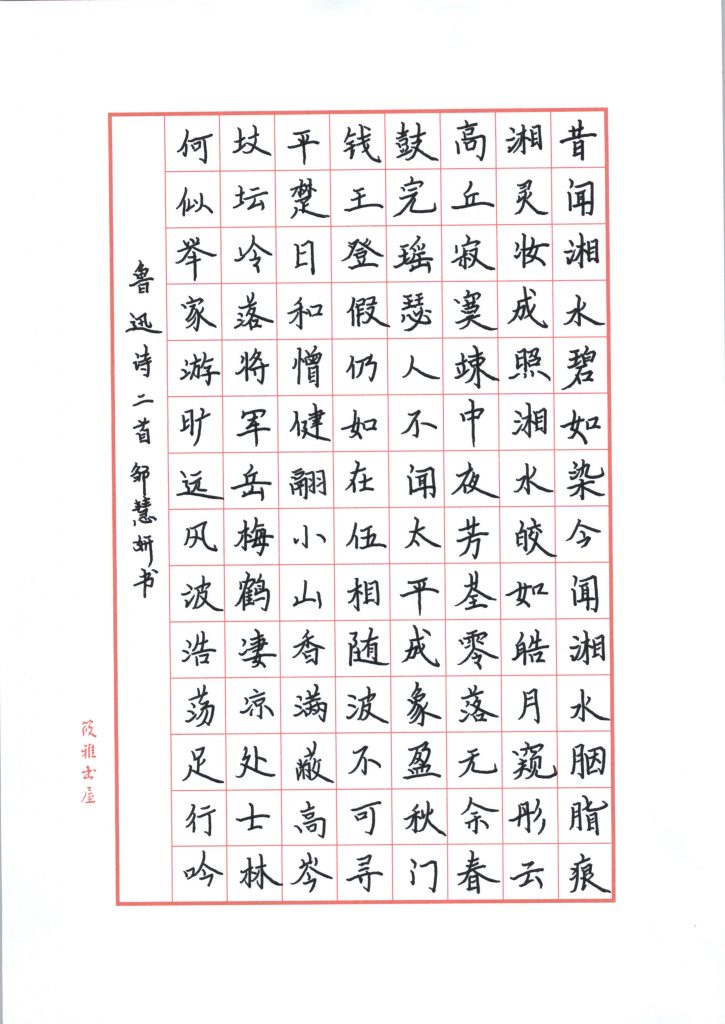 昔闻湘水碧如染今闻湘水胭脂痕
湘灵妆成照湘水皎如皓月窥彤云
高丘寂寞竦中夜芳荃零落无余春
鼓完瑶瑟人不闻太平成象盈秋门
钱王登假仍如在伍相随波不可寻
平楚日和憎健翮小山香满蔽高岑
坟坛冷落将军岳梅鹤凄凉处士林
何似举家游旷远风波浩荡足行吟
鲁迅诗二首 邹慧妍书
筱雅书屋